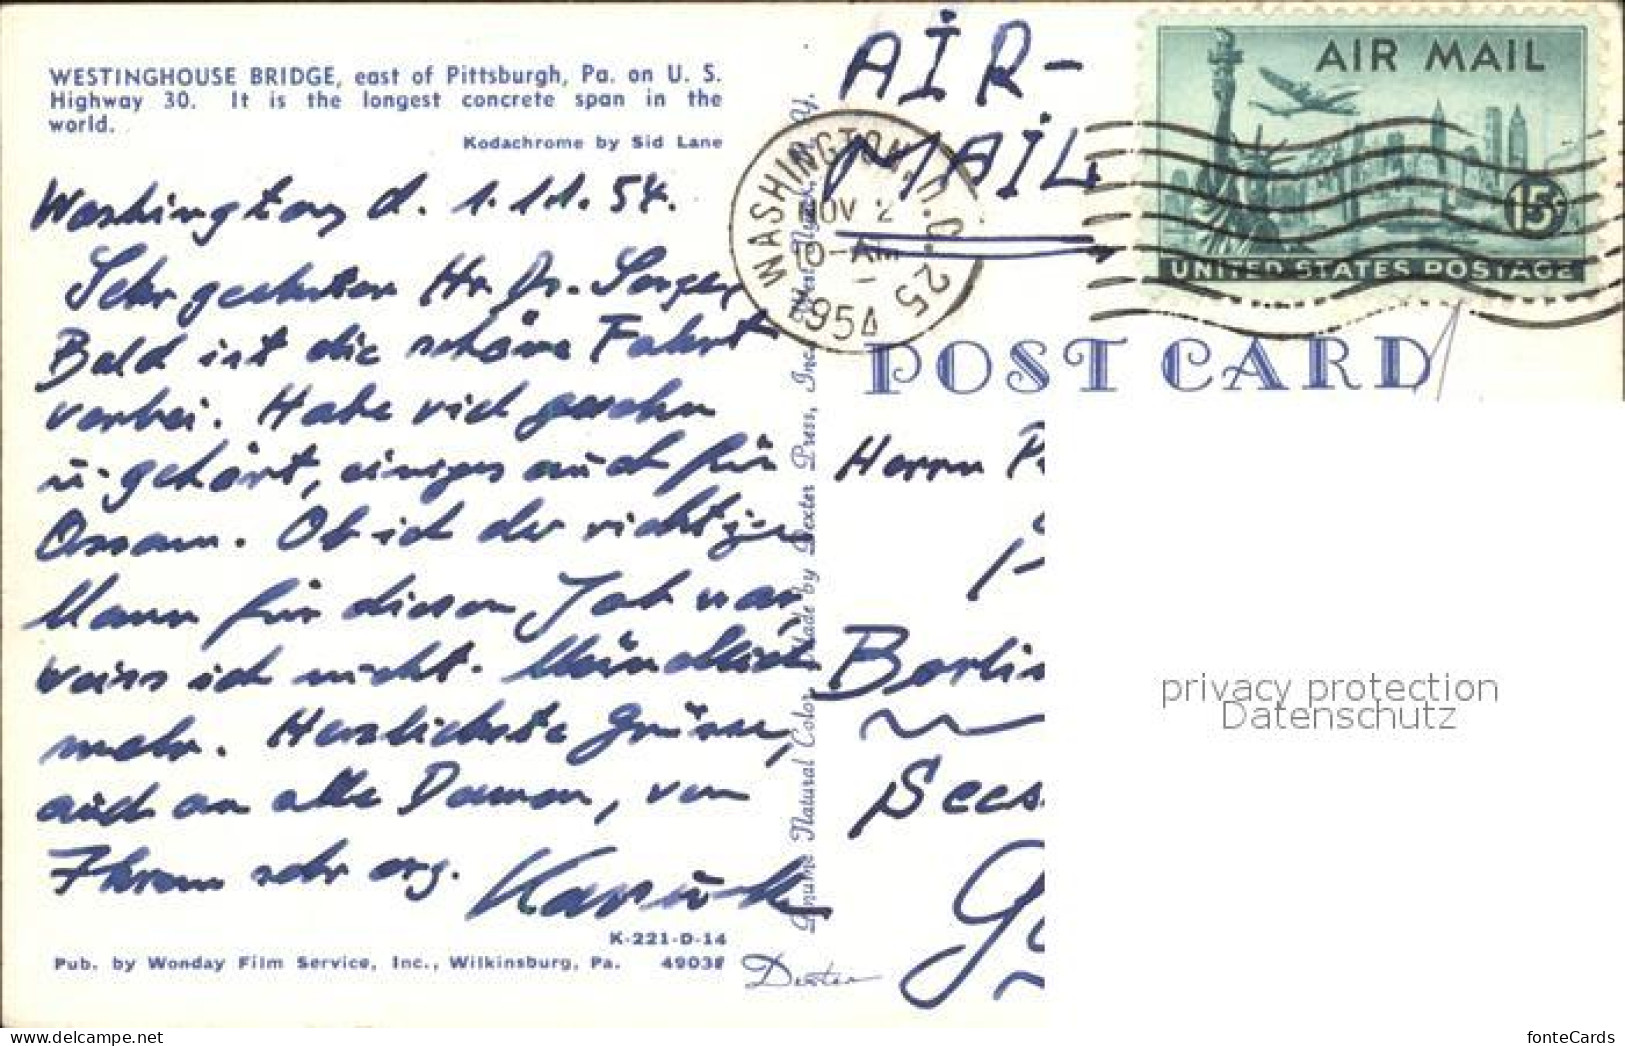 WESTINGHOUSE BRIDGE, east of Pittsburgh, Pa. on U. S.
Highway 30. It is the longest concrete span in the
world.
Kodachrome by Sid Lane
Washington d. 1.11.54.
Sehr geehrter Hr. Dr.
Bald ist die schöne Fahrt
vorbei. Habe viel gesehn
u. gehört, einiges auch für
Ob ich der richtige
Mann für diesen Job war,
weiss ich nicht. Mündlich
mehr. Herzlichste Grüsse,
auch an alle Damen, von
Ihrem sehr erg.
K-221-D-14
Pub. by Wonday Film Service, Inc., Wilkinsburg, Pa. 49038
Dexter
Genuine Natural Color Made by Dexter Press, Inc. West Nyack, N.Y.
AIR-
MAIL
WASHINGTON, D.C. 25
NOV 2
10-AM
1954
AIR MAIL
15¢
UNITED STATES POSTAGE
POST CARD
Herrn
Berlin
privacy protection
Datenschutz
fonteCards